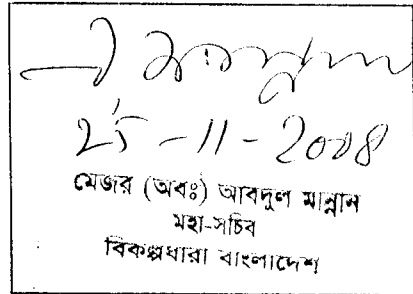 25-11-2008
মেজর (অবঃ) আবদুল মান্নান
মহা-সচিব
বিকল্পধারা বাংলাদেশ